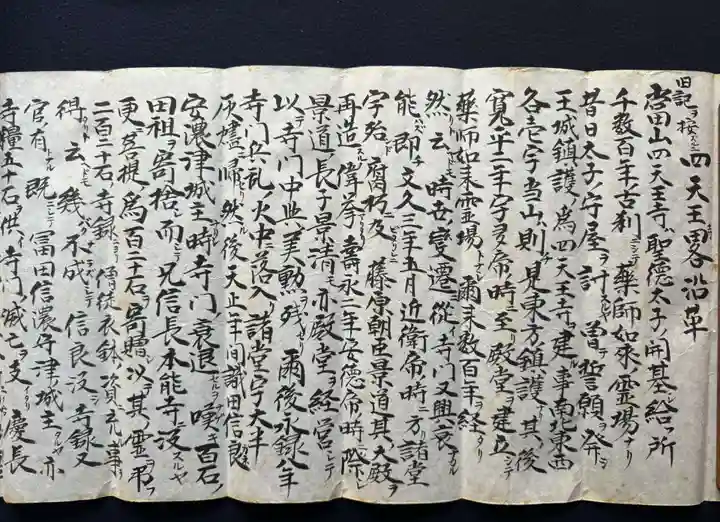 四天王畧沿革
旧記ヲ按スルニ
塔田山四天王寺ハ聖徳太子ノ開基ニ給フ所
千数百年古刹ニシテ薬師如来ノ霊場ナリ
昔日太子ノ守屋ヲ討スルノ曽テ誓願ヲ発シ
王城鎮護ノ為四天王寺ヲ建ル事南北東西
各壱宇当山ハ則チ見東方鎮護ナリ其後
寛平二年宇多帝時ニ至リ殿堂ヲ建立シテ
薬師如来霊場トナル爾来数百年ヲ経タリ
然リト云ヘドモ時世変遷ニ従イ寺門又興衰ナル
能ハズ即チ文久三年五月近衛帝ノ時ニ方リ諸堂
宇名ド腐朽ニ及ビタリシヲ藤原朝臣景道其大殿ヲ
再造スル偉挙アリ壽永二年安徳帝時ニ際シ
景道ノ長子景清モ亦殿堂ヲ経営シテ
以テ寺門中興ノ美勲ヲ残セリ爾後永録八年
寺門兵乱ノ火中ニ落入リ諸堂宇大半
灰燼ニ帰セリ然ル後天正年間織田信良
安濃津城主ノ時寺門ノ衰退セルヲ嘆キ百石ノ
田租ヲ寄捨シ而シテ兄信長本能寺ニ没スルヤ
更ニ菩提ノ為百二十石ヲ寄贈シ以テ其ノ霊ヲ弔フ
二百二十石ノ寺録ニヨリ僧徒衣鉢ノ資ニ充ル事ヲ
得タリト云ヘドモ幾バクナラズシテ信良没シ寺録又
官有トナル既ニシテ冨田信濃守津城主タルヤ亦
寺糧五十石ヲ供シ寺門ノ滅亡ヲ支ヘタリ慶長